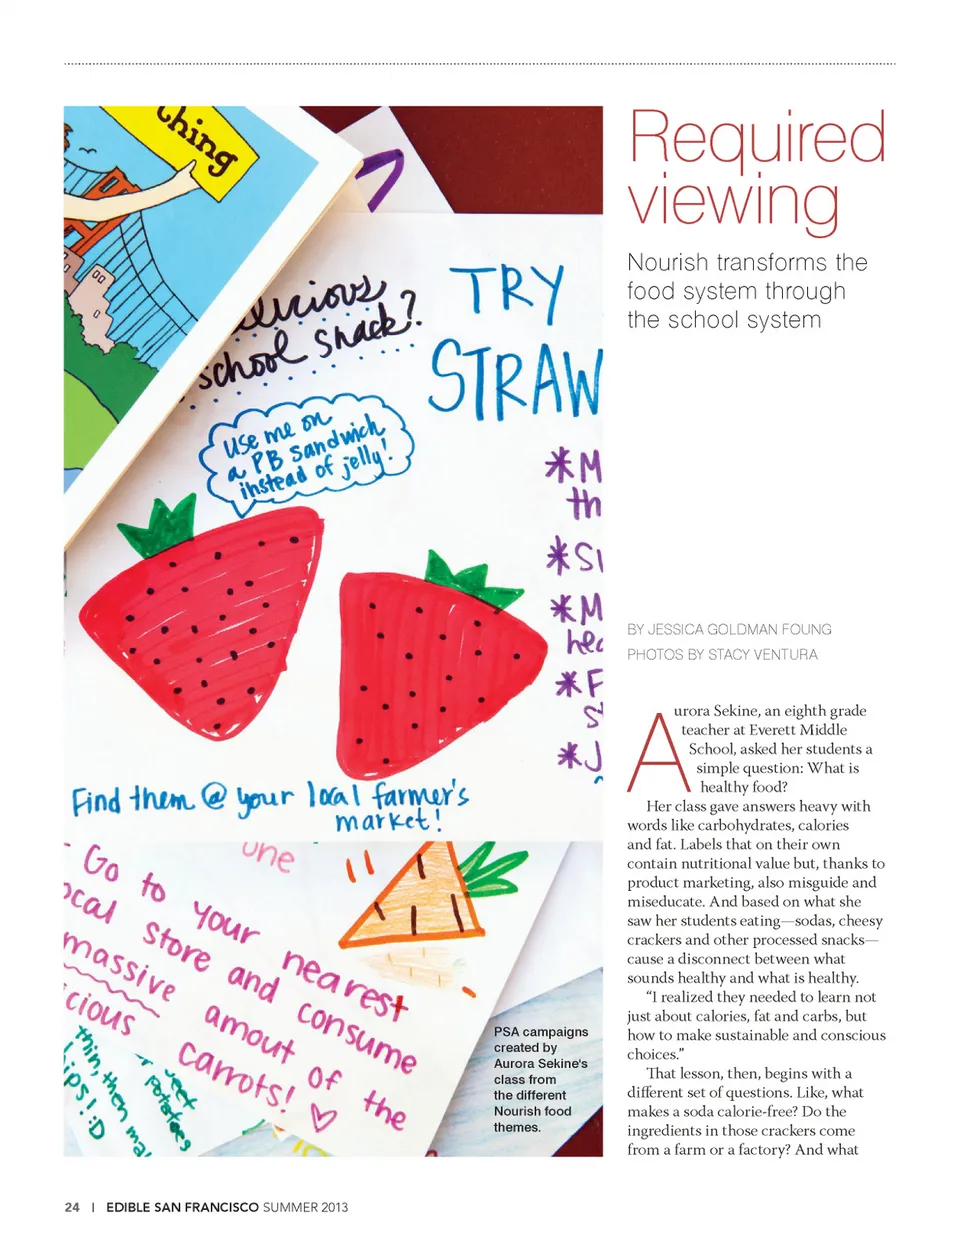 Required
viewing
Nourish transforms the
food system through
the school system
BY JESSICA GOLDMAN FOUNG
PHOTOS BY STACY VENTURA
Aurora Sekine, an eighth grade
teacher at Everett Middle
School, asked her students a
simple question: What is
healthy food?
Her class gave answers heavy with
words like carbohydrates, calories
and fat. Labels that on their own
contain nutritional value but, thanks to
product marketing, also misguide and
miseducate. And based on what she
saw her students eating—sodas, cheesy
crackers and other processed snacks—
cause a disconnect between what
sounds healthy and what is healthy.
“I realized they needed to learn not
just about calories, fat and carbs, but
how to make sustainable and conscious
choices.”
That lesson, then, begins with a
different set of questions. Like, what
makes a soda calorie-free? Do the
ingredients in those crackers come
from a farm or a factory? And what
ching
licious
school snack?
TRY
STRAW
use me on
a PB sandwich
instead of jelly!
*M
th
*SI
*M
hea
*F
st
*J
Find them @ your local farmer's
market!
one
Go to your nearest
ocal store and consume
massive amout of the
icious carrots! ♡
thin, then ma
ips! :D
eet
potatoes
PSA campaigns
created by
Aurora Sekine's
class from
the different
Nourish food
themes.
24 | EDIBLE SAN FRANCISCO SUMMER 2013